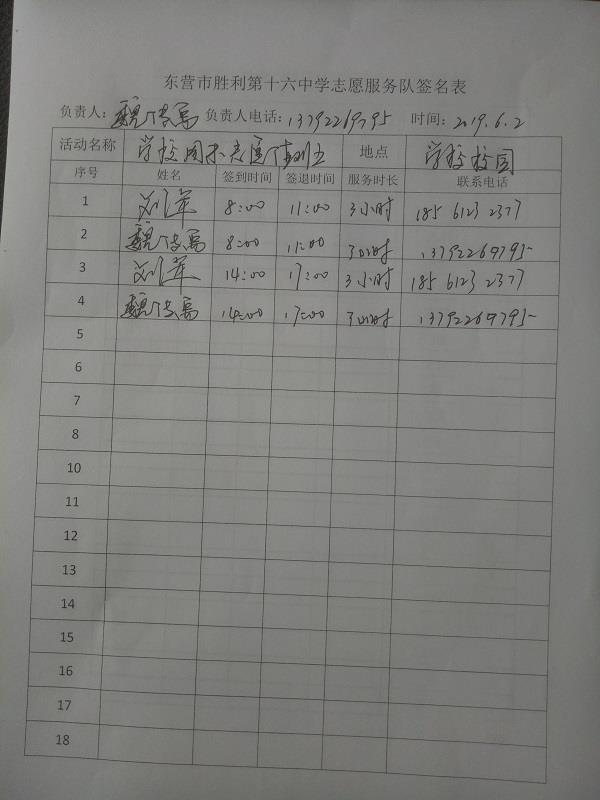 东营市胜利第十六中学志愿服务队签名表
负责人: 魏 负责人电话: 13792269795 时间: 2019.6.2
活动名称 学校周 地点 学校校园
序号 姓名 签到时间 签退时间 服务时长 联系电话
1 刘军 8:00 11:00 3小时 185 6123 2377
2 魏 8:00 11:00 3小时 13792269795
3 刘军 14:00 17:00 3小时 185 6123 2377
4 魏 14:00 17:00 3小时 13792269795
5
6
7
8
10
11
12
13
14
15
16
17
18